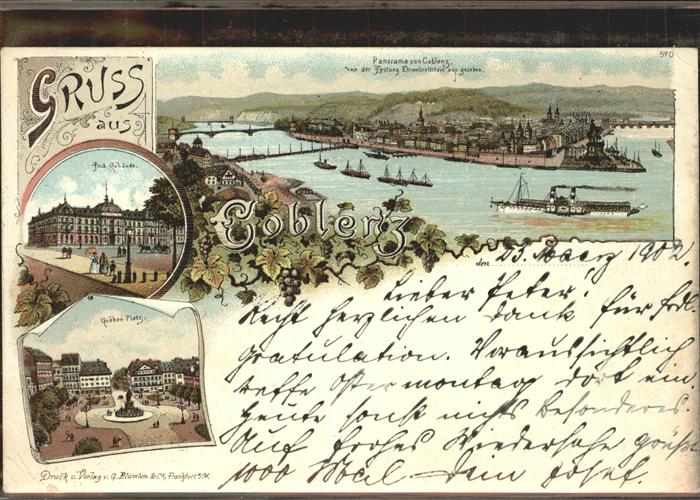 Panorama von Coblenz
von der Festung Ehrenbreitstein aus gesehen.
570
GRUSS
aus
Coblenz
Post-Gebäude.
Goeben-Platz.
den 23. März 1902.
Lieber Peter!
Recht herzlichen Dank für frdl.
Gratulation. Voraussichtlich
treffe Ostermontag dort ein
Heute sonst nichts besonderes
Auf frohes Wiedersehn grüßt
1000 Mal Dein Josef.
Druck u. Verlag v. G. Blümlein & Co., Frankfurt a/M.